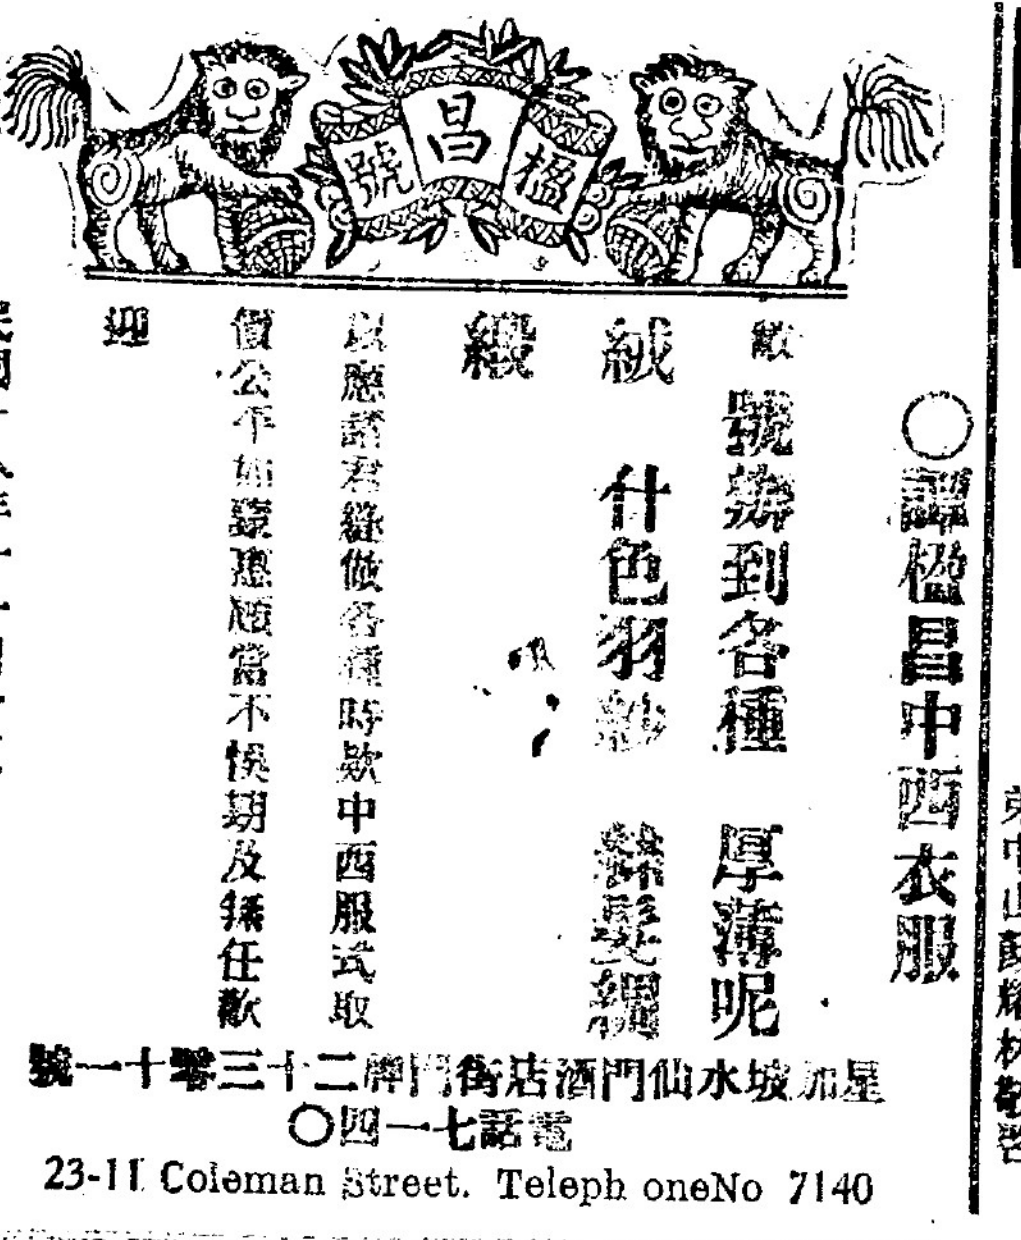 楹昌號
○譚楹昌中西衣服
敝號辦到各種 厚薄呢
絨 什色羽紗 綢
緞
以應諸君縫做各種時欵中西服式取
價公平如蒙惠顧當不悞期及無任歡
迎
星加坡水仙門酒店街門牌二十三零十一號
電話七一四○
23-11 Coleman Street. Teleph oneNo 7140